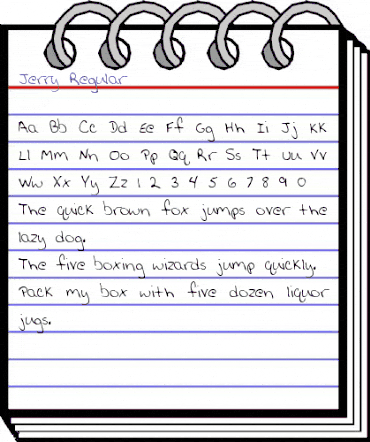 Jerry Regular
Aa Bb Cc Dd Ee Ff Gg Hh Ii Jj Kk
Ll Mm Nn Oo Pp Qq Rr Ss Tt Uu Vv
Ww Xx Yy Zz 1 2 3 4 5 6 7 8 9 0
The quick brown fox jumps over the
lazy dog.
The five boxing wizards jump quickly.
Pack my box with five dozen liquor
jugs.